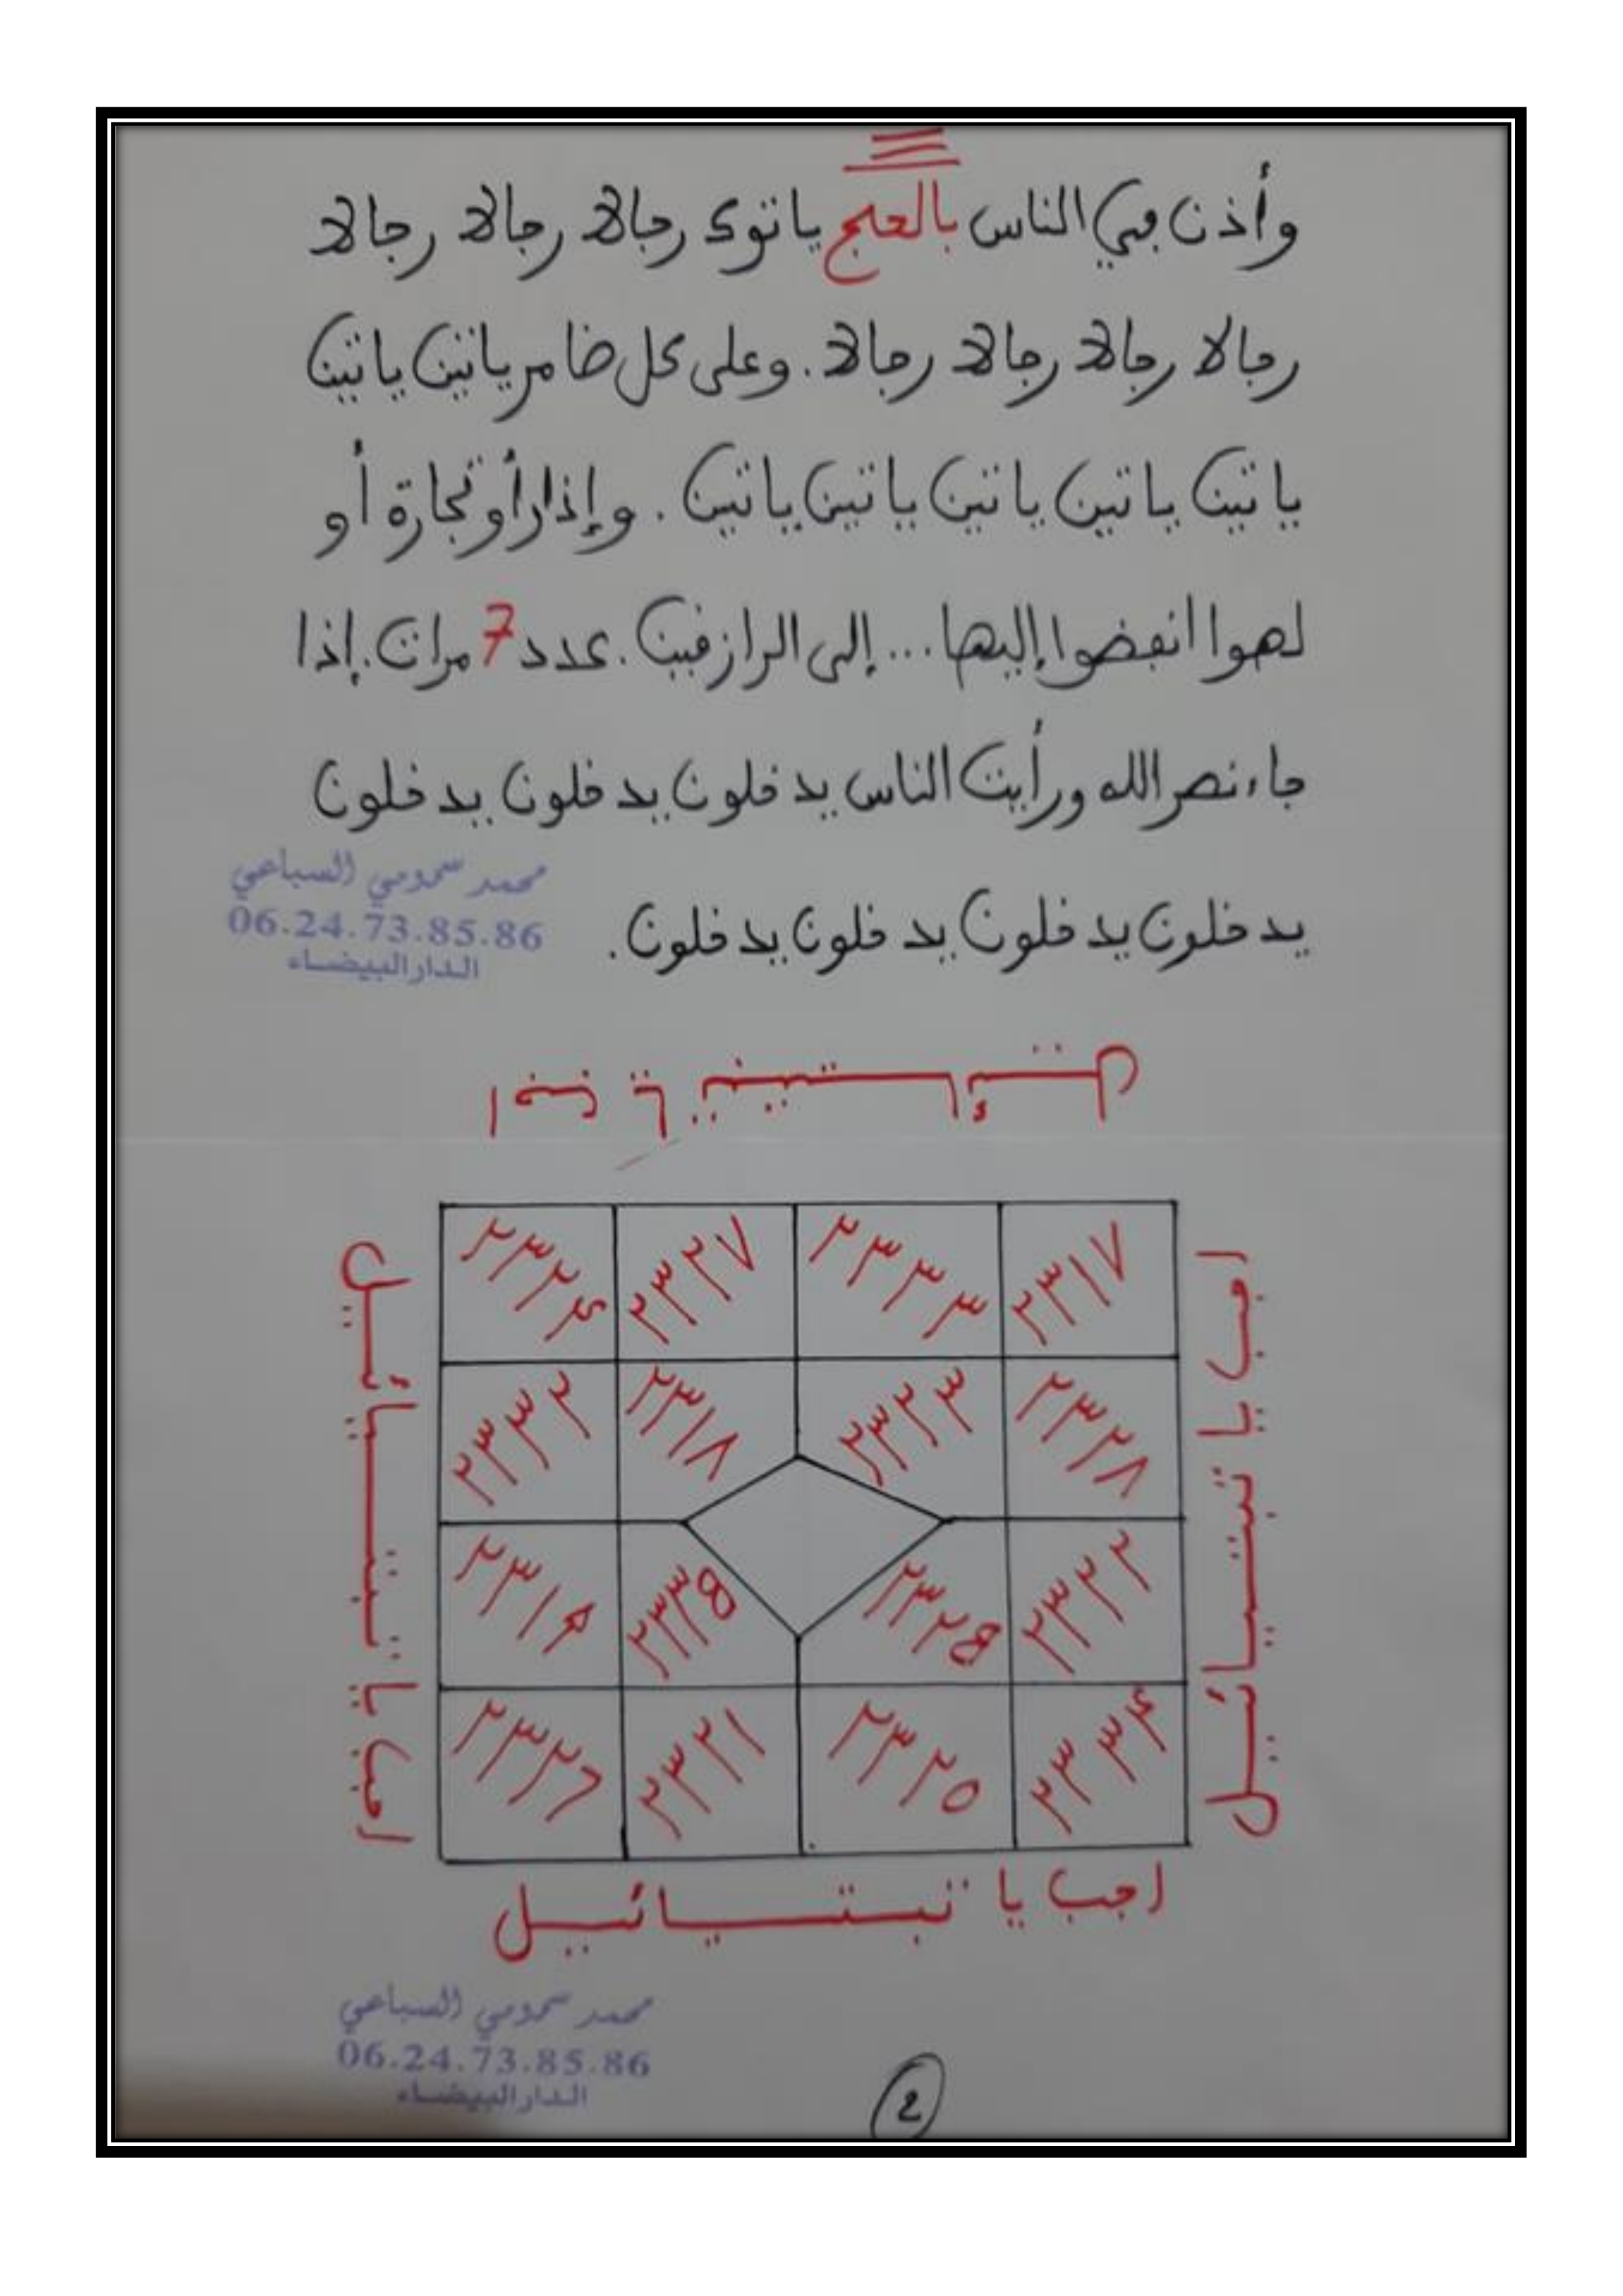 وأذن في الناس بالحج ياتوك رجالا رجالا رجالا
رجالا رجالا رجالا رجالا. وعلى كل ضامر ياتين ياتين
ياتين ياتين ياتين ياتين ياتين. وإذا رأو تجارة أو
لهوا انفضوا إليها... إلى الرازقين. عدد 7 مرات. إذا
جاء نصر الله ورأيت الناس يدخلون يدخلون يدخلون
يدخلون يدخلون يدخلون يدخلون.
محمد سحومي السباعي
06.24.73.85.86
الدار البيضاء
اجب يا تبتيائيل
٢٣٢٤ ٢٣٢٧ ٢٣٣٣ ٢٣١٧
٢٣٣٢ ٢٣١٨ ٢٣٢٣ ٢٣٢٨
٢٣١٩ ٢٣٣٥ ٢٣٢٥ ٢٣٢٢
٢٣٢٦ ٢٣٢١ ٢٣٢٥ ٢٣٣٤
اجب يا تبتيائيل
محمد سحومي السباعي
06.24.73.85.86
الدار البيضاء
2